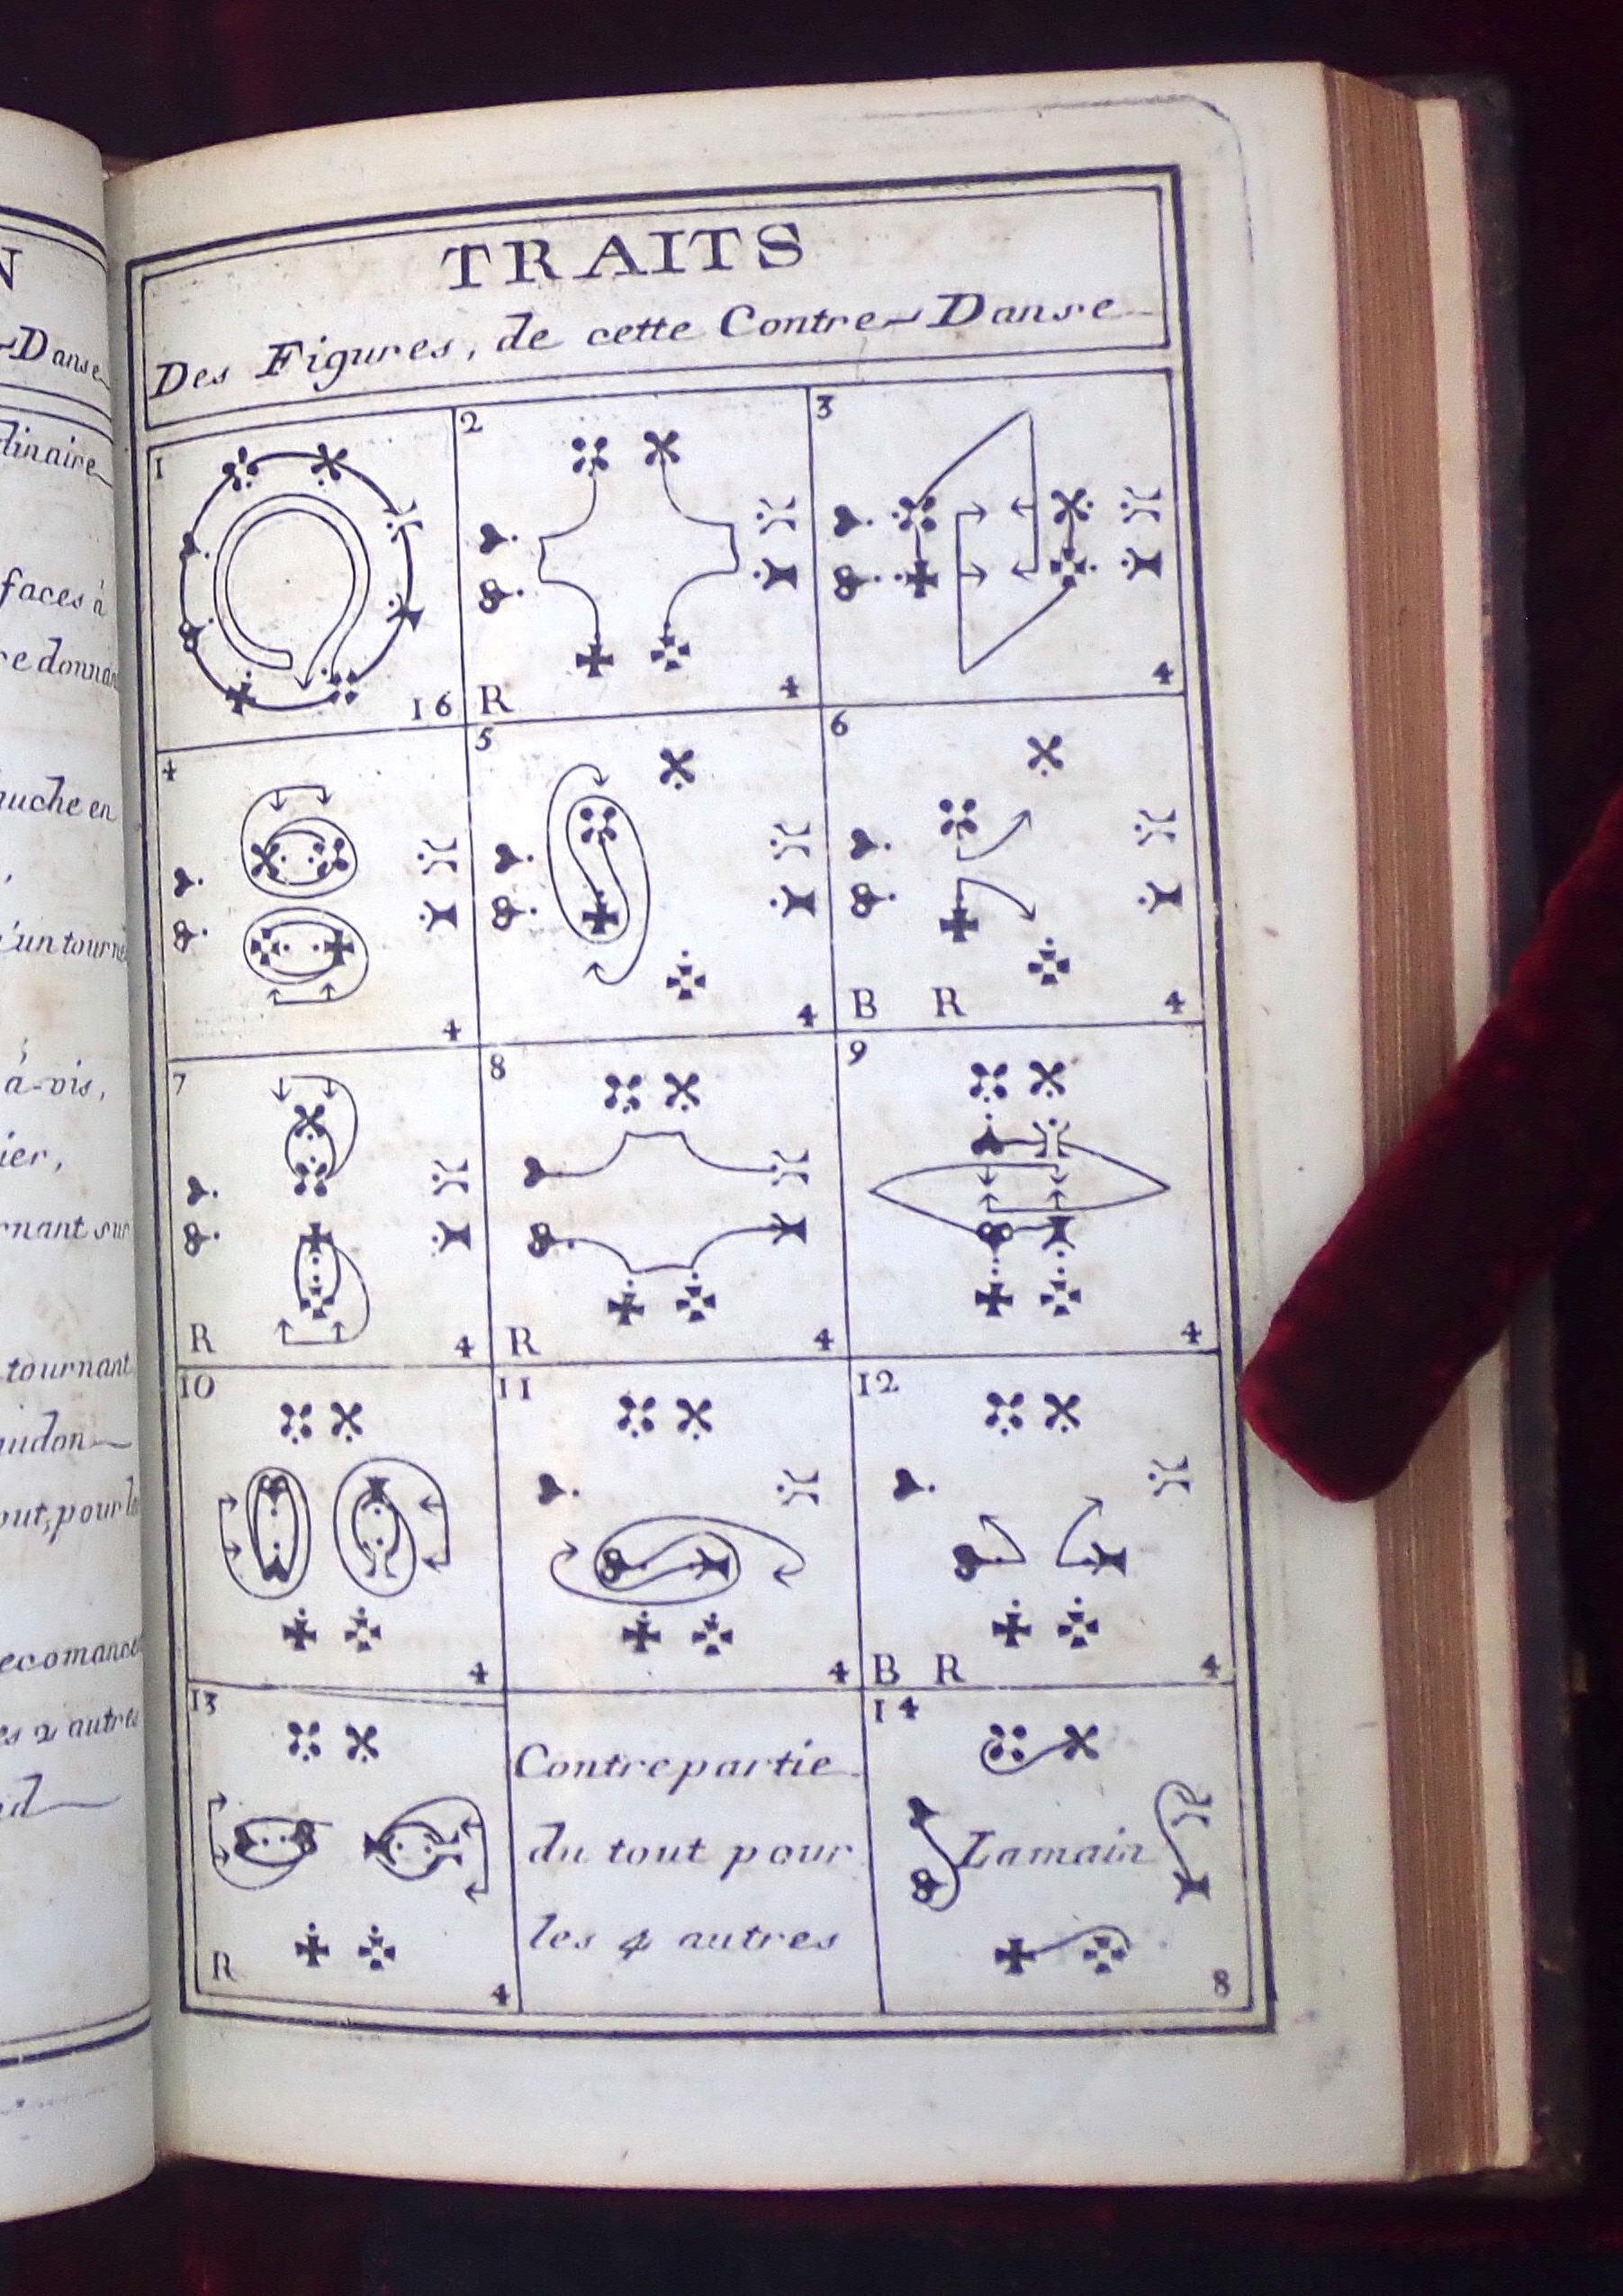 N
-Danse
dinaire
faces à
re donnan
auche en
,
'un tourne
à-vis,
ier,
rnant sur
tournant
audon
out, pour la
recomance
es 2 autres
TRAITS
Des Figures, de cette Contre-Danse
1
16
2
R
4
3
4
4
4
5
4
6
B R
4
7
R
4
8
R
4
9
4
10
4
11
4
12
B R
4
13
R
4
Contrepartie
du tout pour
les 4 autres
14
Lamain
8